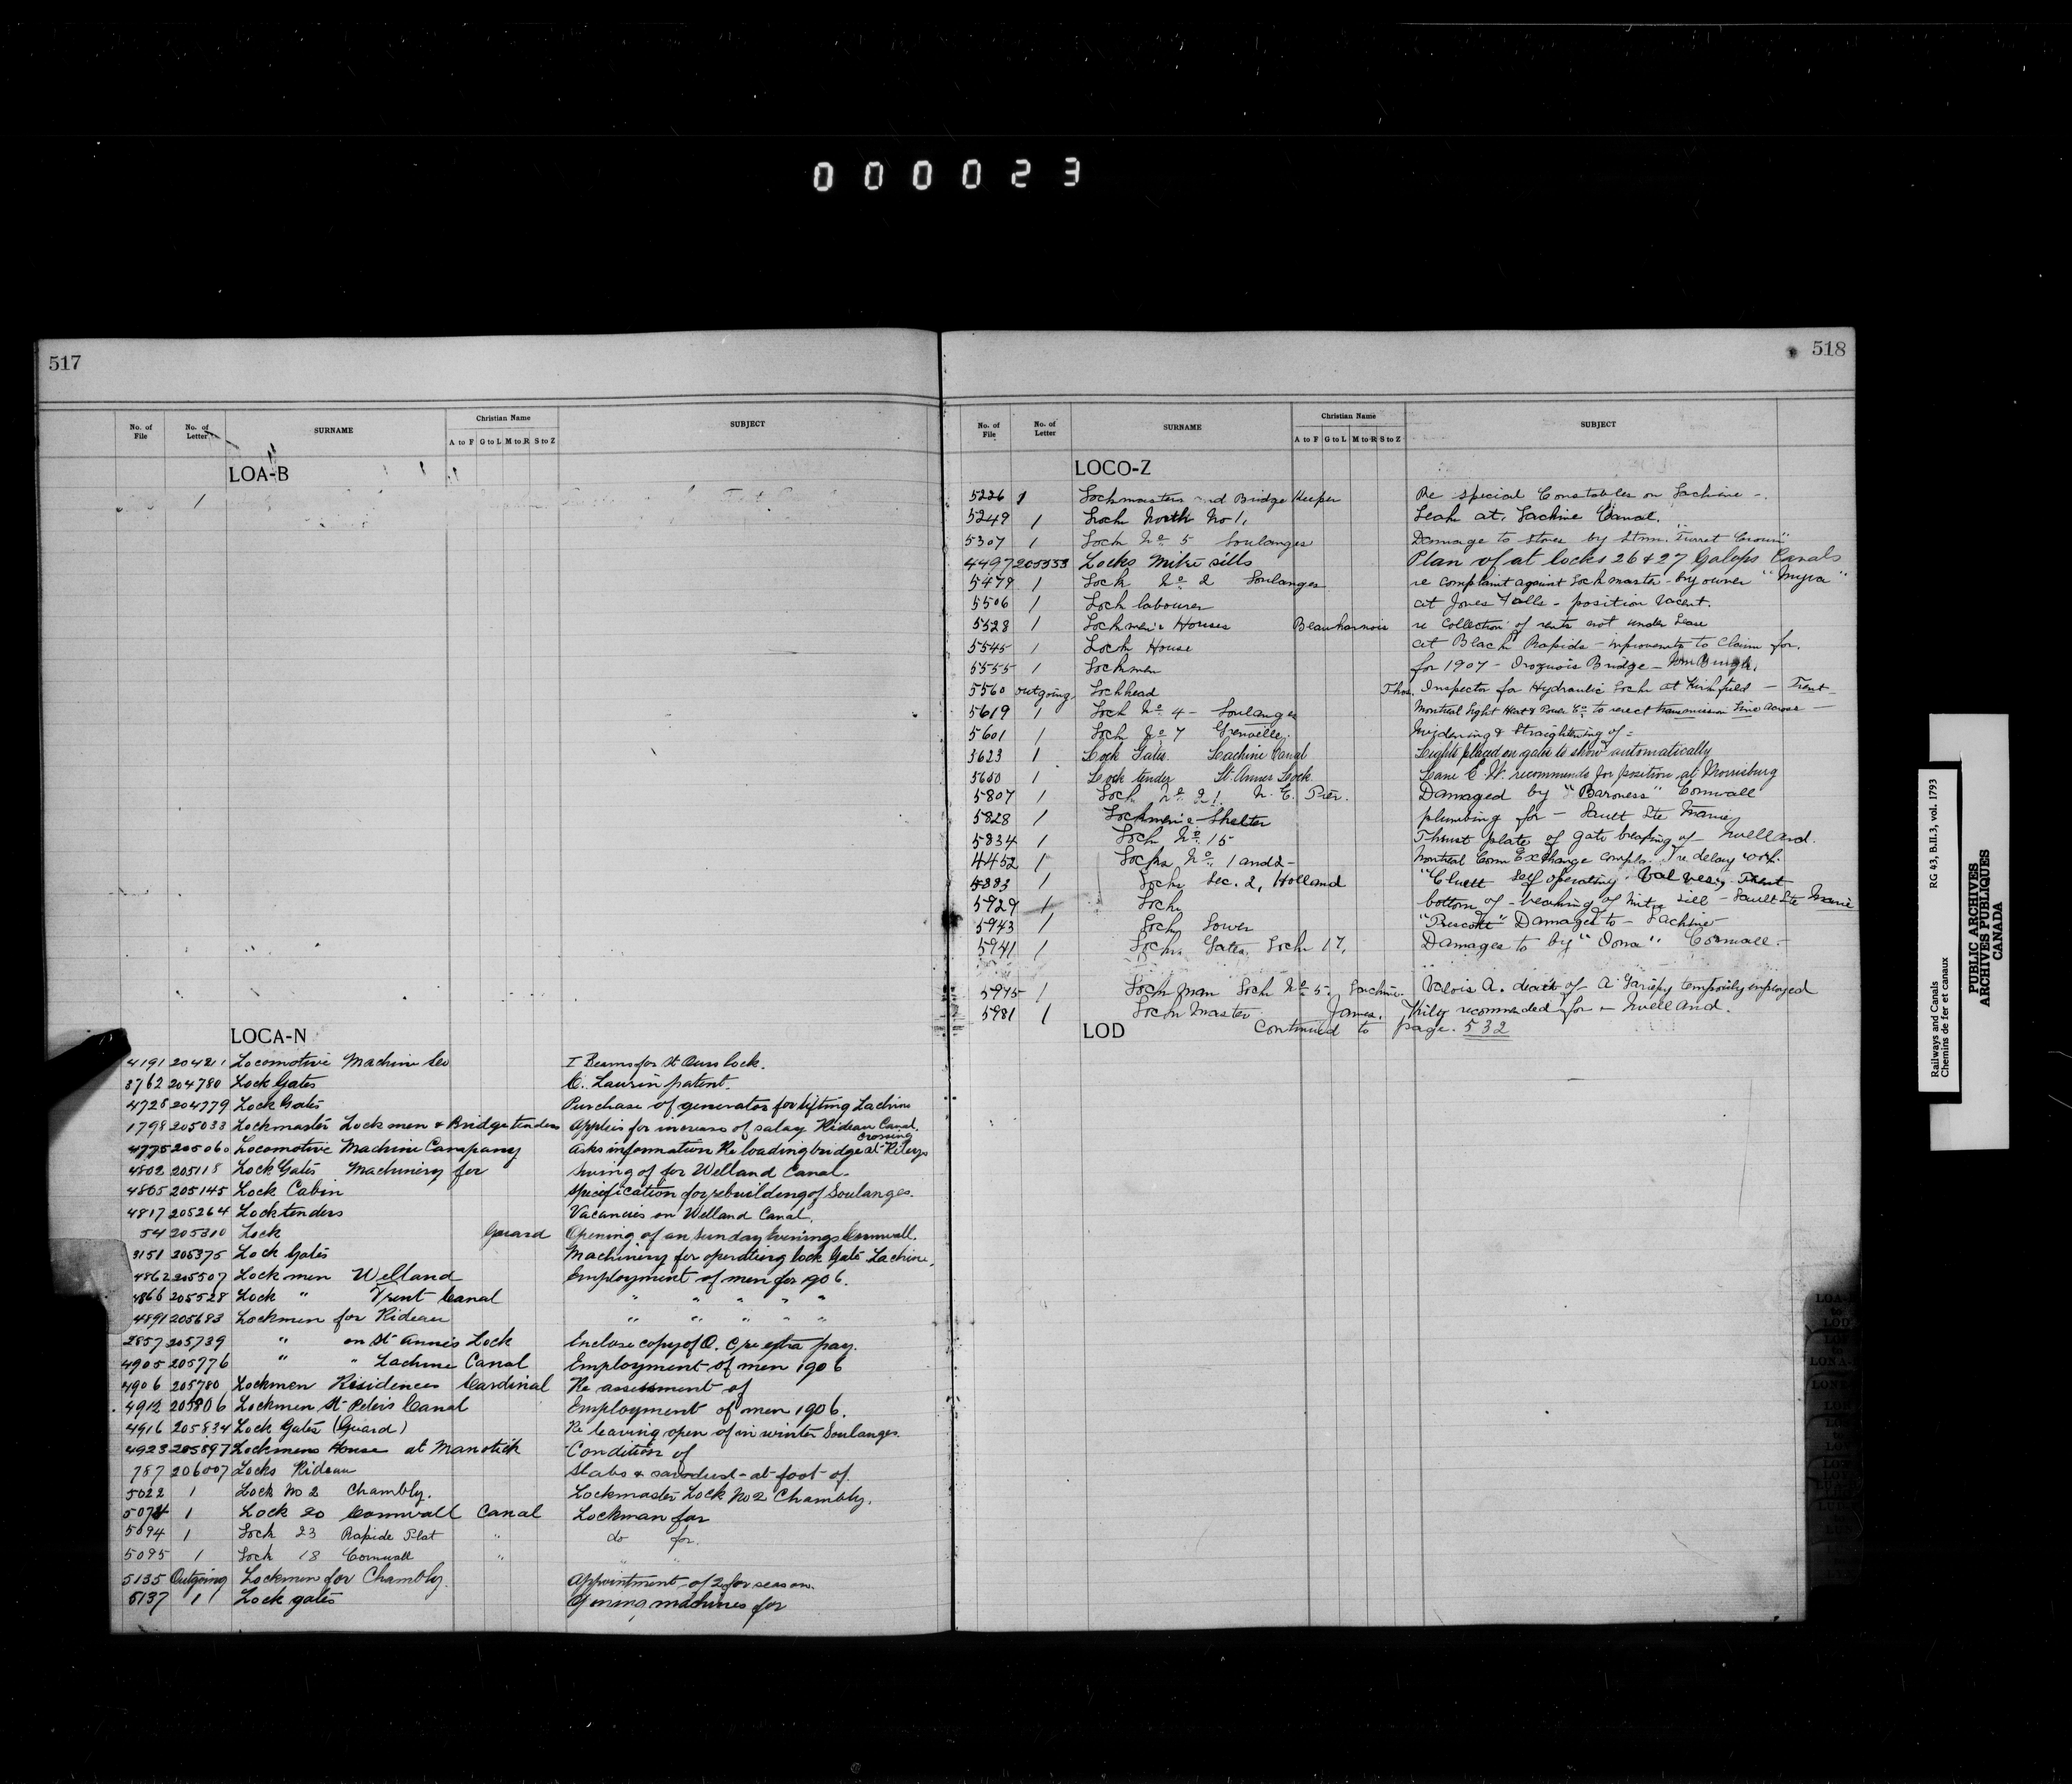 000023
517
No. of File No. of Letter SURNAME Christian Name A to F G to L M to R S to Z SUBJECT
LOA-B
1
LOCA-N
4191 204211 Locomotive Machine Co I Beams for St Ours lock.
3762 204780 Lock Gates C. Laurin patent.
4728 204779 Lock Gates Purchase of generator for lifting Lachine
1798 205033 Lockmaster Lockmen & Bridgetenders Applies for increase of salary Rideau Canal.
4775 205060 Locomotive Machine Company Asks information Re loading bridge at Rileys crossing
4802 205118 Lock Gates Machinery for of for Welland Canal.
4805 205145 Lock Cabin Specification for rebuilding of Soulanges.
4817 205264 Locktenders Vacancies on Welland Canal.
54 205310 Lock Guard Opening of on Sunday Evenings Cornwall.
3151 205375 Lock Gates Machinery for operating lock Gate Lachine.
4862 205507 Lockmen Welland Employment of men for 1906.
4866 205528 Lock " Trent Canal " " " " "
4891 205683 Lockmen for Rideau " " " " "
2857 205739 " on St Annes Lock Enclose copy of O. C re extra pay.
4905 205776 " " Lachine Canal Employment of men 1906
4906 205780 Lockmen Residences Cardinal Re assessment of
4912 205806 Lockmen St Peters Canal Employment of men 1906.
4916 205834 Lock Gates (Guard) Re leaving open of in winter Soulanges
4923 205897 Lockmens House at Manotick Condition of
787 206007 Locks Rideau Slabs & sawdust at foot of.
5022 1 Lock No 2 Chambly. Lockmaster Lock No 2 Chambly.
5074 1 Lock 20 Cornwall Canal Lockman for
5094 1 Lock 23 Rapide Plat " do for.
5095 1 Lock 18 Cornwall " " "
5135 Outgoing Lockmen for Chambly. Appointment of 2 for season.
5137 1 Lock gates Opening machines for
518
No. of File No. of Letter SURNAME Christian Name A to F G to L M to R S to Z SUBJECT
LOCO-Z
5226 1 Lockmasters and Bridge Keeper Re special Constables on Lachine -.
5249 1 Lock North No 1, Leak at. Lachine Canal.
5307 1 Lock No 5 Soulanges Damage to Stores by Stmr. "Turret Crown"
4497 205353 Locks Mitre sills Plan of at locks 26 & 27 Galops Canals
5479 1 Lock No 2 Soulanges re complaint against Lockmaster by owner "Myra"
5506 1 Lock labourer at Jones Falls - position vacant.
5528 1 Lockmen's Houses Beauharnois re Collection of rents not under Lease
5545 1 Lock House at Black Rapids - improvements to Claim for.
5555 1 Lockmen for 1907 - Iroquois Bridge -
5560 outgoing Lockhead Thos. Inspector for Hydraulic Lock at Kirkfield - Trent
5619 1 Lock No 4 - Soulanges Montreal Light Heat & Power Co to erect transmission line across -
5601 1 Lock No 7 Grenville. Widening & Straightening of =
3623 1 Lock Gates. Lachine Canal Lights placed on gates to show automatically
5680 1 Lock tender St. Annes Lock Lane E. W. recommends for position at Morrisburg
5807 1 Lock No 21. N. E. Pier. Damaged by "Baroness" Cornwall
5828 1 Lockmen's Shelter plumbing for - Sault Ste Marie
5834 1 Lock No 15 Thrust plate of gate breaking of Welland.
4452 1 Locks No 1 and 2 - Montreal Corn Exchange compls. re delay
5883 1 Locks Sec. 2, Holland "Cluett Self operating Valves, Trent
5929 1 Lock bottom of - breaking of Mitre Sill - Sault Ste Marie
5943 1 Lock Lower "Prescott" Damages to - Lachine
5941 1 Locks Gates, Lock 17, Damages to by "Iona" Cornwall.
5975 1 Lockman Lock No 5. Lachine. Valois A. death of A Gariepy temporily employed
5981 1 Lock Master James, Kiley recommended for - Welland.
LOD Continued to page. 532
Railways and Canals RG 43, B.II.3, vol. 1793
Chemins de fer et canaux
PUBLIC ARCHIVES
ARCHIVES PUBLIQUES
CANADA
LOA-
to
LOD
LONA-